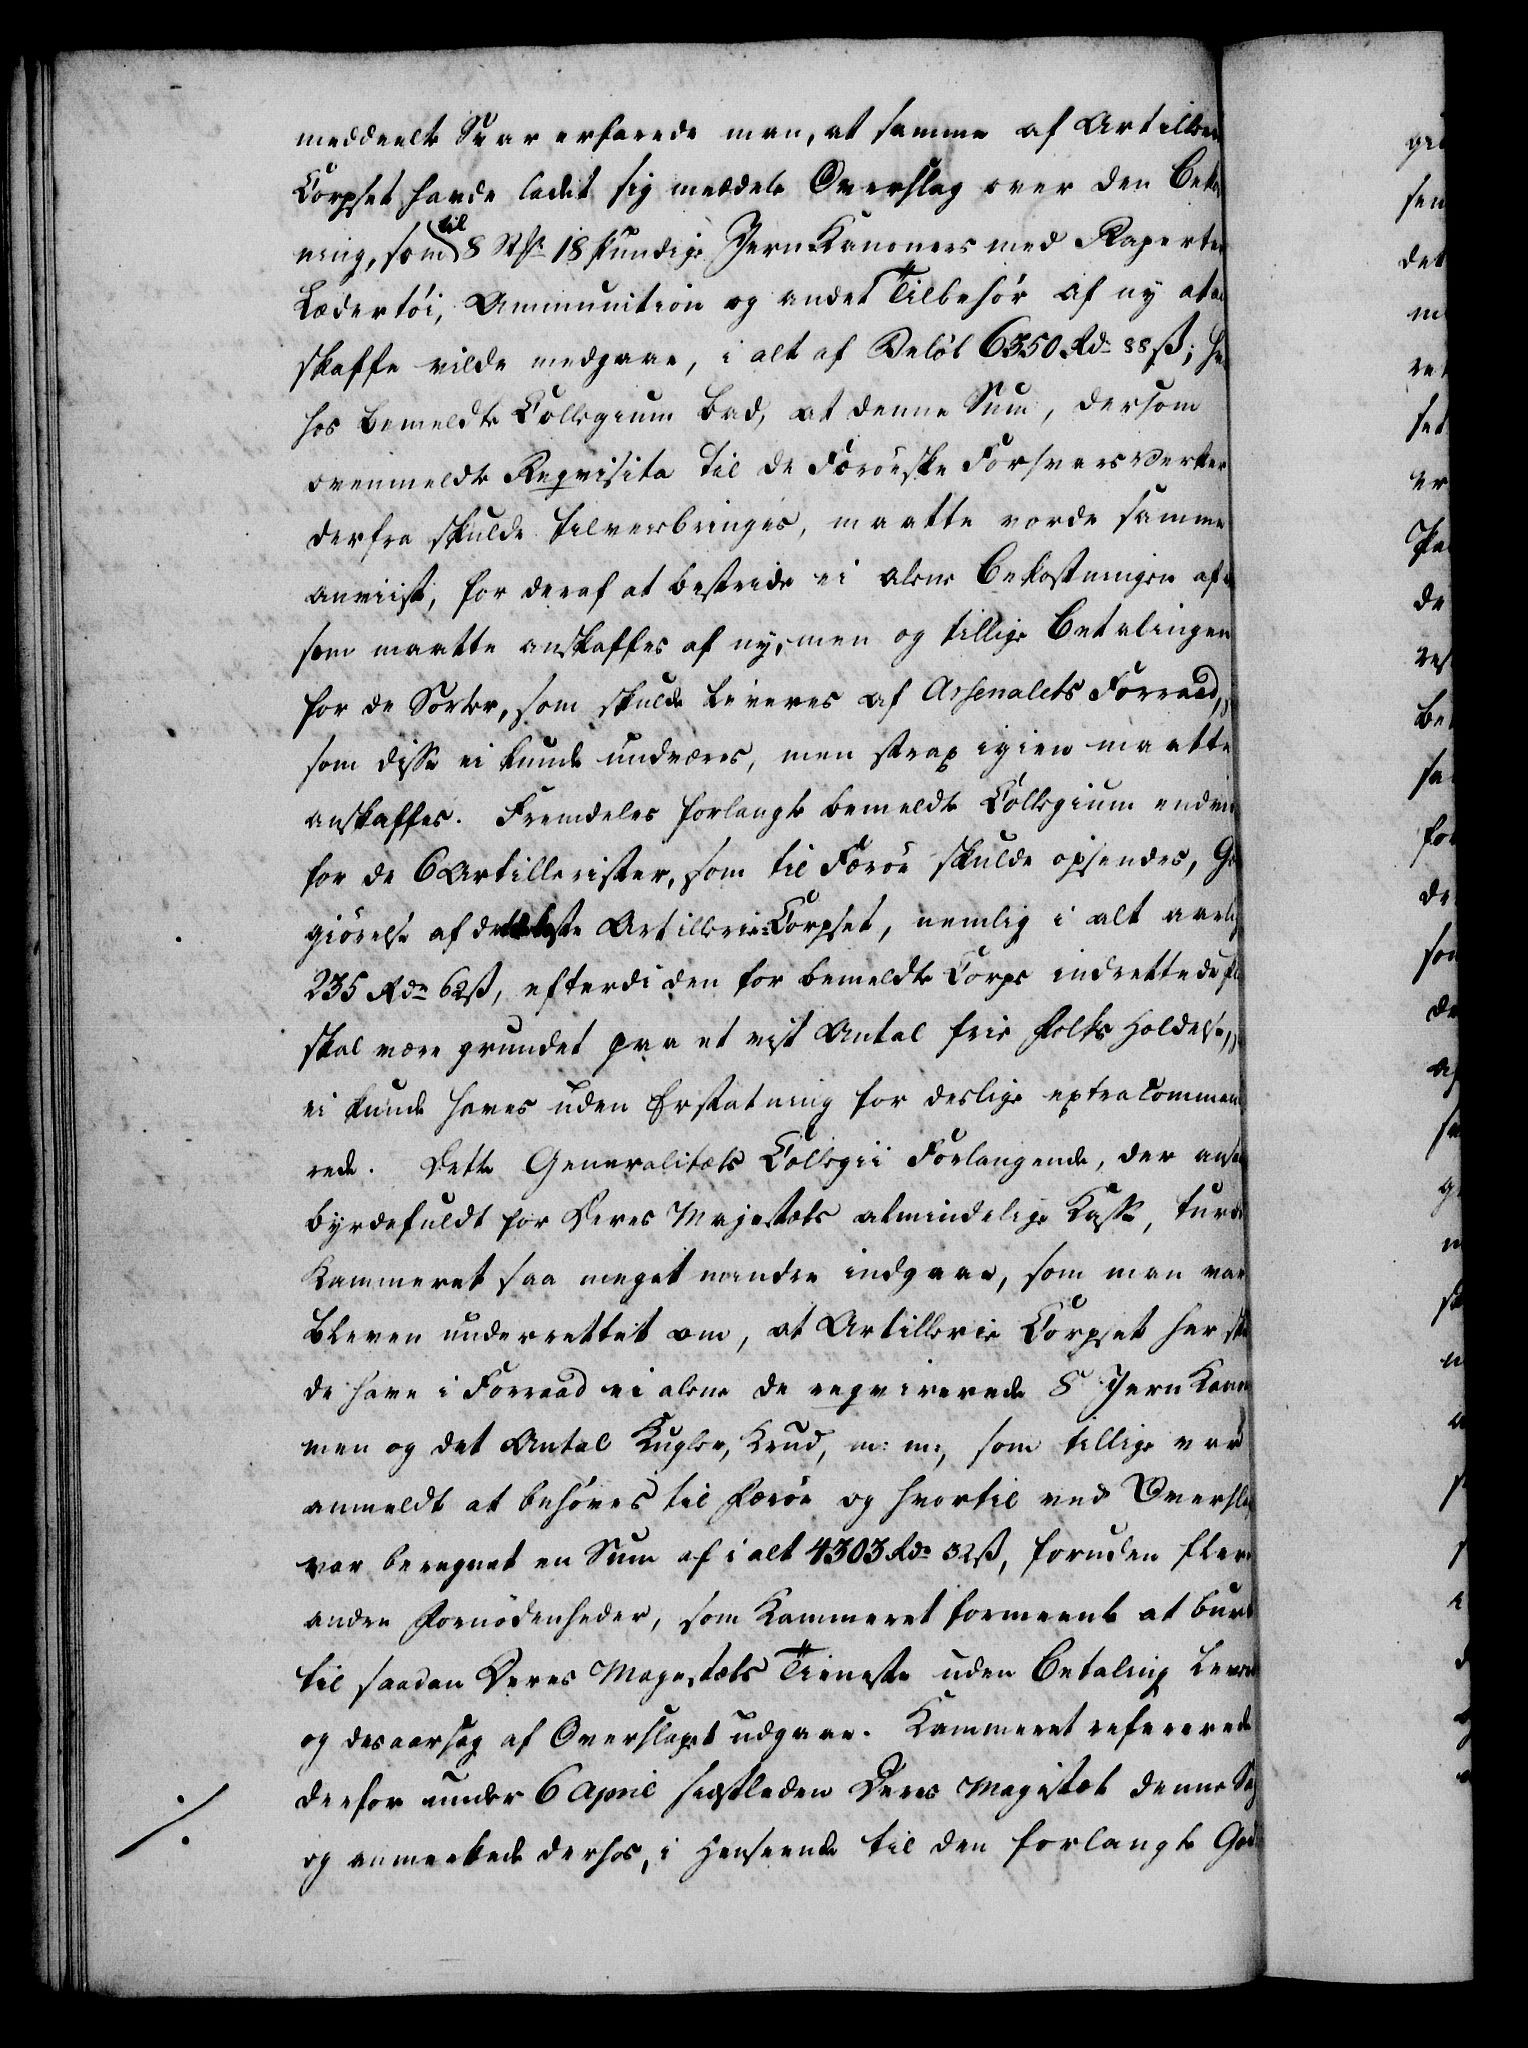 meddeelte Svar erfarede man, at samme af Artillerie
Corpset havde ladet sig meddele Overslag over den Beko
ning, som til 8 St. 18 pundige Jern Kanoner med Raperter
Lædertöi, Ammunition og andet Tilbehör af ny at an
skaffe vilde medgaae, i alt af Belöb 6350 Rd. 88 ß; hv
hos bemeldte Collegium bad, at denne Sum, dersom
ovenmeldte Reqvisita til de Færöeske Forsvarsverker
derfra skulde tilveiebringes, maatte vorde samme
anviist, for deraf at bestride ei alene Bekostningen af d
som maatte anskaffes af ny, men og tillige Betalingen
for de Sorter, som skulde leveres af Arsenalets Forraad,
som disse ei kunde undværes, men strax igien maatte
anskaffes. Fremdeles forlangte bemeldte Collegium endvi
for de 6 Artillerister, som til Færöe skulde opsendes, God
giörelse af dette Artillerie-Corpset, nemlig i alt aarlig
235 Rd. 62 ß, efterdi den for bemeldte Corps indrettede Pla
skal være grundet paa et vist Antal frie Folks Holdelse,
ei kunde haves uden Erstatning for deslige extra comman
rede. Dette Generalitets Collegii Forlangende, der ansaa
byrdefuldt for Deres Majestæts almindelige Kasse, turde
Kammeret saa meget mindre indgaae, som man var
bleven underrettet om, at Artillerie Corpset her sk
de have i Forraad ei alene de reqvirerede 8 Jern Kano
men og det Antal Kugler, Krud, m: m:, som tillige var
anmeldt at behöves til Færöe og hvortil ved Overslag
var beregnet en Sum af i alt 4303 Rd. 32 ß, foruden flere
andre Fornödenheder, som Kammeret formeente at burde
til saadan Deres Majestæts Tieneste uden Betaling lever
og desaarsag af Overslaget udgaae. Kammeret refererede
derfor under 6 April sidstleden Deres Majestæt denne Sag
og anmerkede derhos, i Henseende til den forlangte God